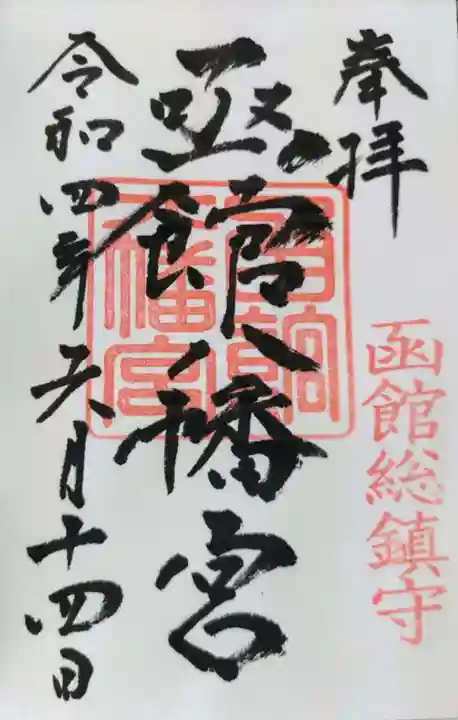 奉拝
函館総鎮守
凾館八幡宮
函館
八幡宮
令和四年六月十四日